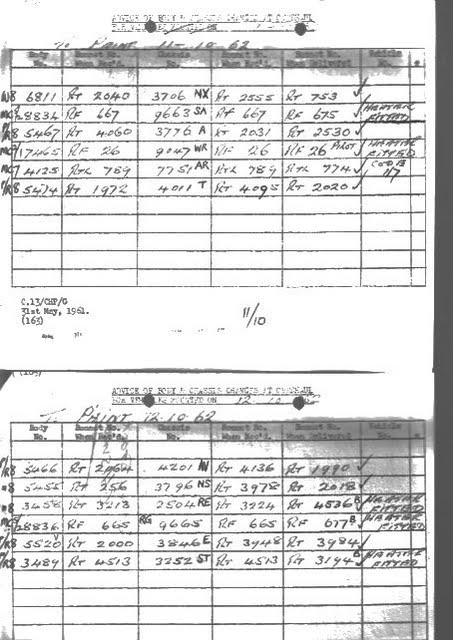 ADVICE OF BODY & CHASSIS CHANGES AT
To PAINT 11-10-62
Body No. Bonnet No. When Rec'd. Chassis No. Bonnet No. Bonnet No. When Delivered Vehicle No.
6811 RT 2040 3706 NX RT 2555 RT 753 ✓
8834 RF 667 9663 SA RF 667 RF 675 ✓ HEATER FITTED
5467 RT 4060 3776 A RT 2031 RT 2530 ✓
7465 RF 26 9047 WR RF 26 RF 26 PILOT ✓ HEATER FITTED
4125 RTL 789 7751 AR RTL 789 RTL 774 ✓ CODE 117
RT 1972 4011 T RT 4095 RT 2020 ✓
C.13/CHP/G
31st May, 1961.
(163)
11/10
ADVICE OF BODY & CHASSIS CHANGES AT
12 10 62
To PAINT 12-10-62
Body No. Bonnet No. When Rec'd. Chassis No. Bonnet No. Bonnet No. When Delivered Vehicle No.
5466 RT 4201 RT 4136 RT 1990 ✓
5455 RT 256 3796 NS RT 3978 RT 2018 ✓
3458 RT 3213 2504 RE RT 3224 RT 4536 B HEATER FITTED
8836 RF 665 RG 9665 RF 665 RF 677 B HEATER FITTED
5520 RT 2000 3846 E RT 3948 RT 3984 ✓
3489 RT 4513 3252 ST RT 4513 RT 3194 B HEATER FITTED